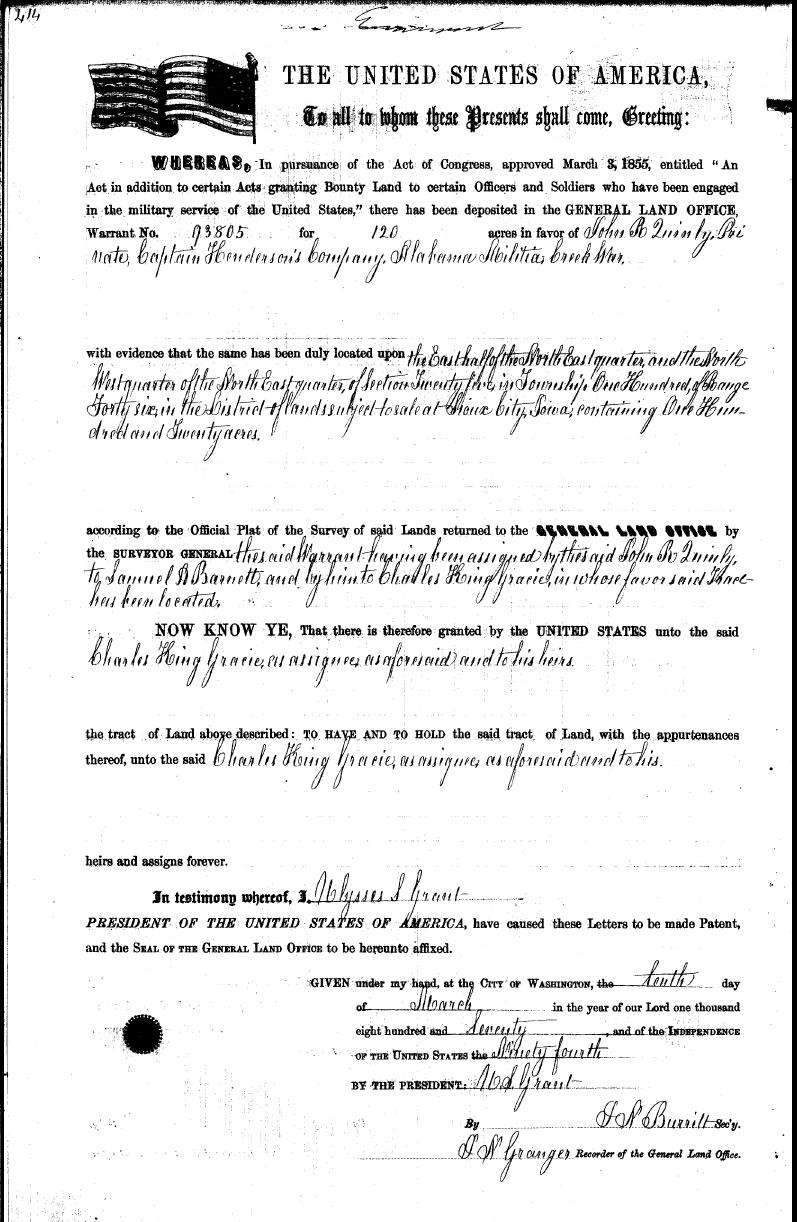 214
THE UNITED STATES OF AMERICA,
To all to whom these Presents shall come, Greeting:
WHEREAS, In pursuance of the Act of Congress, approved March 3, 1855, entitled "An
Act in addition to certain Acts granting Bounty Land to certain Officers and Soldiers who have been engaged
in the military service of the United States," there has been deposited in the GENERAL LAND OFFICE,
Warrant No. 93805 for 120 acres in favor of John R Quinly, Pri
vate, Captain Henderson's Company, Alabama Militia, Creek War,
with evidence that the same has been duly located upon the East half of the North East quarter, and the North
West quarter of the North East quarter, of Section Twenty five, in Township One Hundred, of Range
Forty six, in the District of lands subject to sale at Sioux City, Iowa, containing One Hun-
dred and Twenty acres.
according to the Official Plat of the Survey of said Lands returned to the GENERAL LAND OFFICE by
the SURVEYOR GENERAL the said Warrant having been assigned by the said John R Quinly,
to Samuel B Barnett, and by him to Charles King Gracie, in whose favor said Tract
has been located.
NOW KNOW YE, That there is therefore granted by the UNITED STATES unto the said
Charles King Gracie, as assignee, as aforesaid and to his heirs.
the tract of Land above described: TO HAVE AND TO HOLD the said tract of Land, with the appurtenances
thereof, unto the said Charles King Gracie, as assignee, as aforesaid and to his.
heirs and assigns forever.
In testimony whereof, I, Ulysses S Grant
PRESIDENT OF THE UNITED STATES OF AMERICA, have caused these Letters to be made Patent,
and the SEAL OF THE GENERAL LAND OFFICE to be hereunto affixed.
GIVEN under my hand, at the CITY OF WASHINGTON, the tenth day
of March in the year of our Lord one thousand
eight hundred and Seventy, and of the INDEPENDENCE
OF THE UNITED STATES the Ninety fourth
BY THE PRESIDENT: U S Grant
By I N Burritt Sec'y.
I N Granger Recorder of the General Land Office.